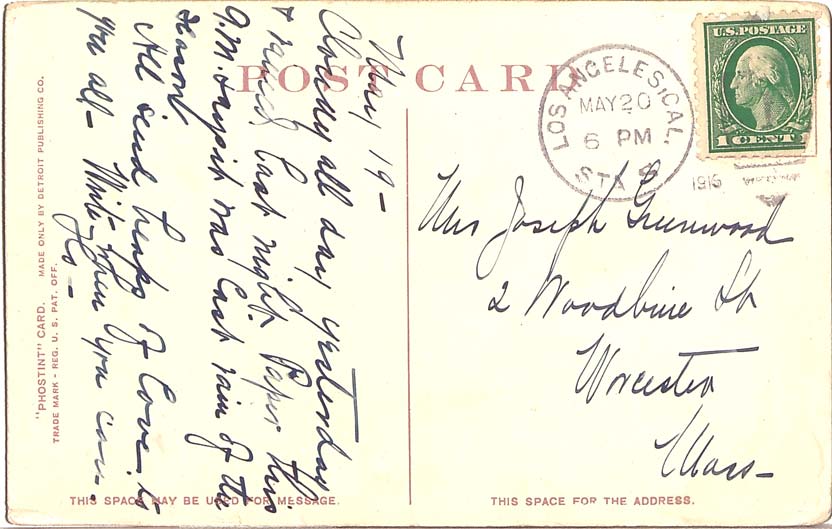 POST CARD
May 19 -
Cloudy all day, yesterday
& rained last night. Paper this
A.M. says it was last rain of the
season
All send heaps of love to
you all - Write when you can -
"PHOSTINT" CARD. MADE ONLY BY DETROIT PUBLISHING CO.
TRADE MARK - REG. U. S. PAT. OFF.
THIS SPACE MAY BE USED FOR MESSAGE.
LOS ANGELES, CAL.
MAY 20
6 PM
STA
1916
U.S. POSTAGE
1 CENT
Mrs Joseph Greenwood
2 Woodbine St
Worcester
Mass -
THIS SPACE FOR THE ADDRESS.